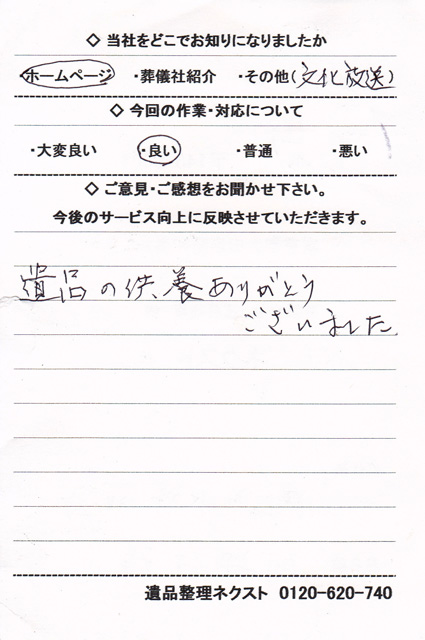 ◇ 当社をどこでお知りになりましたか
・ホームページ ・葬儀社紹介 ・その他(文化放送)
◇ 今回の作業・対応について
・大変良い ・良い ・普通 ・悪い
◇ ご意見・ご感想をお聞かせ下さい。
今後のサービス向上に反映させていただきます。
遺品の供養ありがとう
ございました
遺品整理ネクスト 0120-620-740